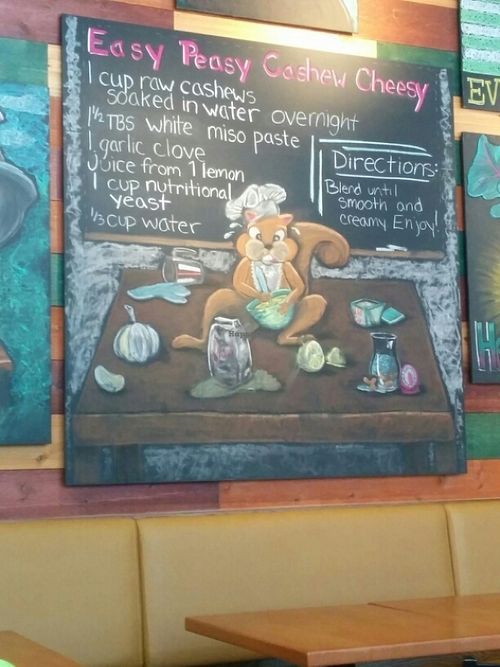 Easy Peasy Cashew Cheesy
1 cup raw cashews
soaked in water overnight
1½ TBS white miso paste
1 garlic clove
juice from 1 lemon
1 cup nutritional
yeast
⅓ cup water
Directions:
Blend until
smooth and
creamy Enjoy!
EV
H